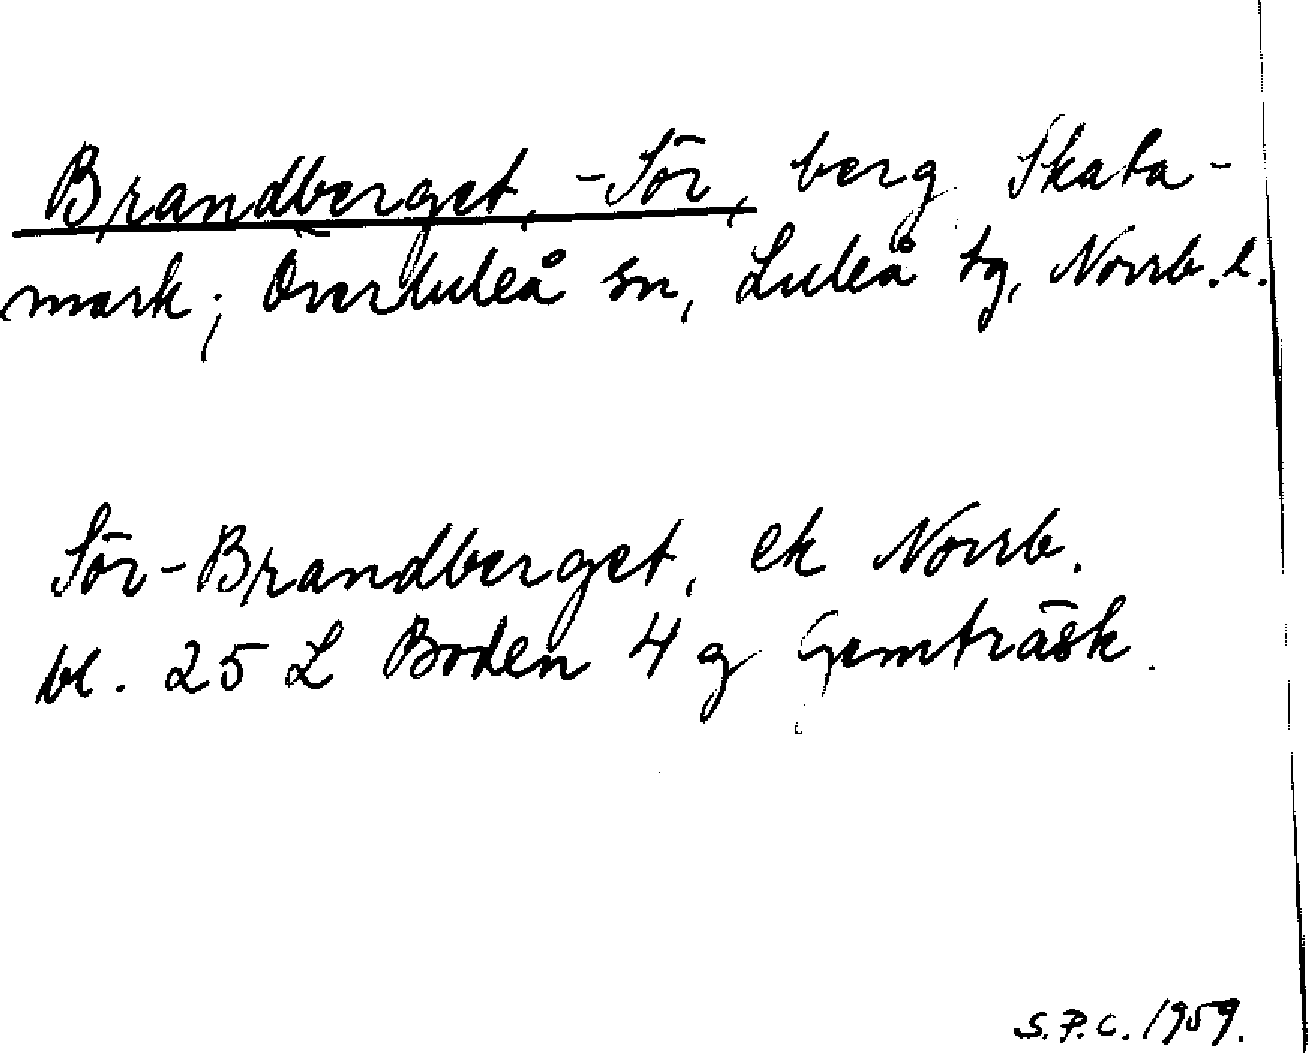 Brandberget, -Sör, berg Skata-
mark; Överluleå sn, Luleå tg, Norrb. l.
Sör-Brandberget, ek Norrb.
bl. 25 L Boden 4 g Gemträsk.
S.P.C. 1959.